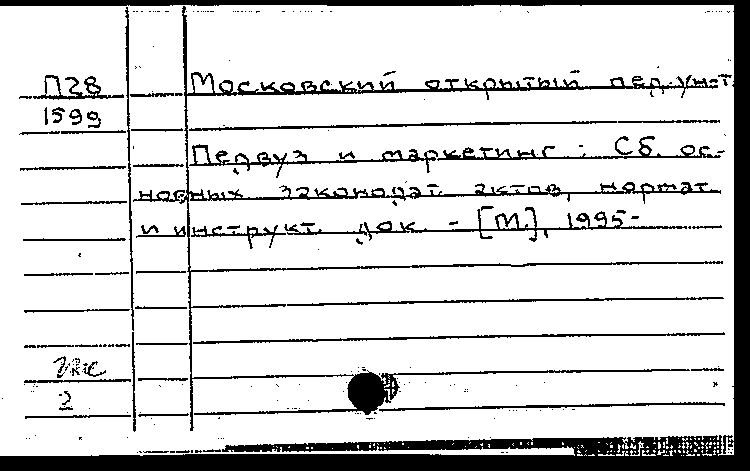 П28 Московский открытый пед. ун-т.
1599
Педвуз и маркетинг : Сб. ос-
новных законодат. актов, нормат.
и инструкт. док. - [М.], 1995-
2